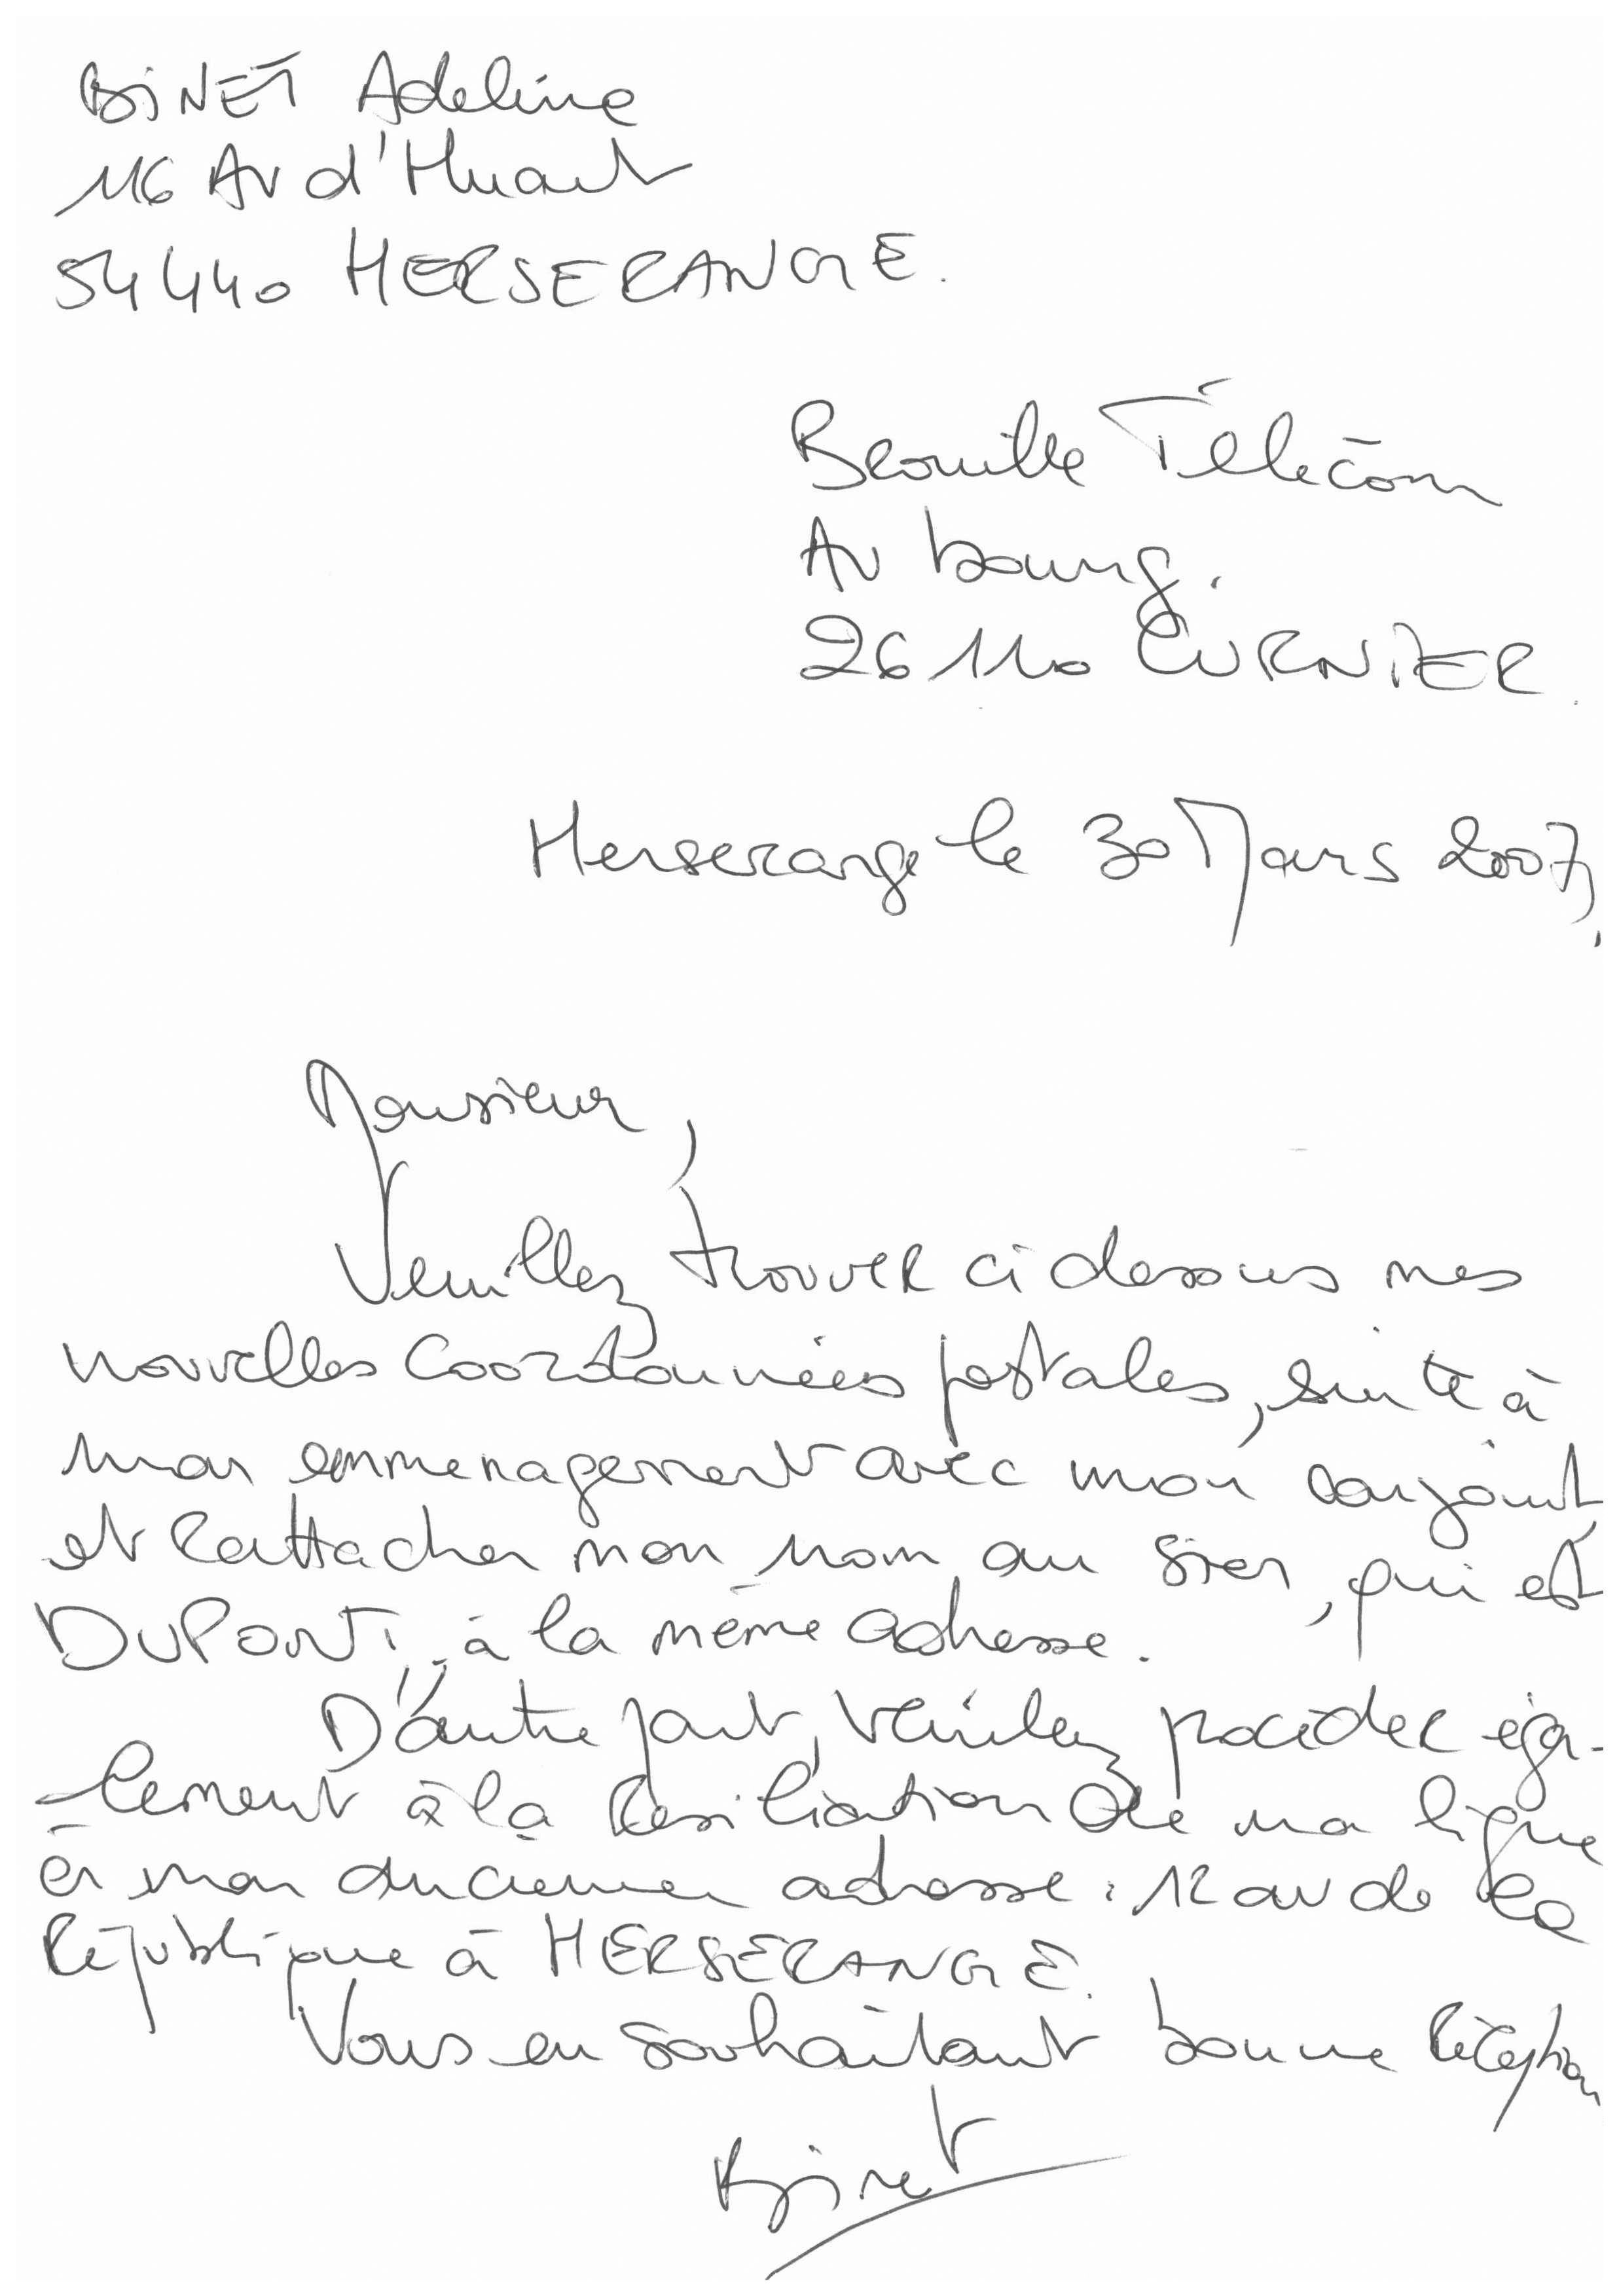 BINET Adeline
116 Av d'Huart
54440 HERSERANGE.
Brouille Télécom
Av bourg.
26110 CURNIER.
Herserange le 30 Mars 2007,
Monsieur,
Veuillez trouver ci dessus mes
nouvelles coordonnées postales, suite à
mon emmenagement avec mon conjoint,
et rattacher mon nom au sien, qui est
DUPONT, à la même adresse.
D'autre part, veuillez procéder éga-
-lement à la resiliation de ma ligne
à mon ancienne adresse : 12 av de la
République à HERSERANGE.
Vous en souhaitant bonne réception
Binet